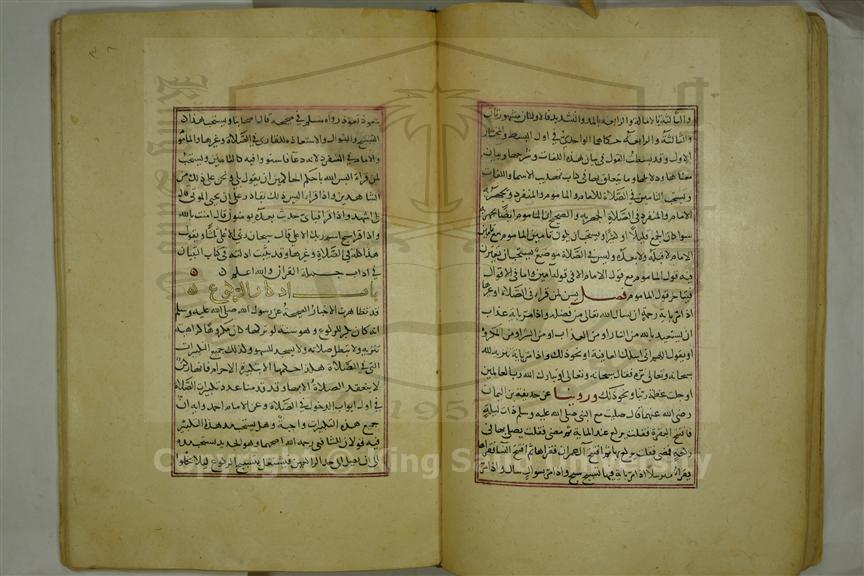 والثالثة بالامالة والرابعة بالمد والتشديد فالاوليان مشهورتان
والثالثة والرابعة حكاهما الواحدي في اول البسيط والمختار
الاول وقد بسطت القول في بيان هذه اللغات وشرحها وبيان
معناها ودلائلها وما يتعلق بها في كتاب تهذيب الاسما واللغات
ويستحب التامين في الصلاة للامام والماموم والمنفرد ويجهر به
الامام والمنفرد في الصلاة الجهرية والصحيح ان الماموم ايضا يجهر به
سوا كان الجمع قليلا او كثيرا ويستحب ان يكون تامين الماموم مع تامين
الامام لا قبله ولا بعده وليس في الصلاة موضع يستحب ان يقترن
فيه قول الماموم مع قول الامام الا في قوله آمين واما في الاقوال
فيتاخر قول الماموم فصل يسن لمن قرا في الصلاة او غيرها
اذا مر باية رحمة ان يسال الله تعالى من فضله واذا مر باية عذاب
ان يستعيذ بالله من النار او من العذاب او من الشر او من المكروه
او يقول اللهم اني اسلك العافية او نحو ذلك واذا مر باية تنزيه لله
سبحانه وتعالى نزه فقال سبحانه وتعالى او تبارك الله رب العالمين
او جلت عظمة ربنا او نحو ذلك وروينا عن حذيفة بن اليمان
رضي الله عنهما قال صليت مع النبي صلى الله عليه وسلم ذات ليلة
فافتح البقرة فقلت يركع عند الماية ثم مضى فقلت يصلي بها في
ركعة فمضى فقلت يركع بها ثم افتتح ال عمران فقراها ثم افتتح النسا فقراها
يقرا مترسلا اذا مر باية فيها تسبيح سبح واذا مر بسوال سال واذا مر
بتعوذ تعوذ رواه مسلم في صحيحه قال اصحابنا ويستحب هذا
التسبيح والسوال والاستعاذة للقاري في الصلاة وغيرها والماموم
والامام والمنفرد لانه دعا فاستووا فيه كالتامين ويستحب
لمن قرا اليس الله باحكم الحاكمين ان يقول بلى ونحن على ذلك من
الشاهدين واذا قرا اليس ذلك بقادر على ان يحيي الموتى قال
بلى اشهد واذا قرا فباي حديث بعده يومنون قال امنت بالله
واذا قرا سبح اسم ربك الاعلى قال سبحان ربي الاعلى ويقول
هذا كله في الصلاة وغيرها وقد بينت ادلته في كتاب التبيان
في اداب حملة القران والله اعلم
باب اذكار الركوع
قد تظاهرت الاخبار الصحيحة عن رسول الله صلى الله عليه وسلم
انه كان يكبر للركوع وهو سنة لو تركه كان مكروها كراهة
تنزيه ولا تبطل صلاته ولا يسجد للسهو وكذلك جميع التكبيرات
التي في الصلاة هذا حكمها الا تكبيرة الاحرام فانها ركن
لا تنعقد الصلاة الا بها وقد قدمنا عدد تكبيرات الصلاة
في اول ابواب الدخول في الصلاة وعن الامام احمد رواية ان
جميع هذه التكبيرات واجبة وهل يستحب مد هذا التكبير
فيه قولان للشافعي رحمه الله اصحهما وهو الجديد يستحب مده
الى ان يصل الى حد الراكعين فيشتغل بتسبيح الركوع ليلا يخلو